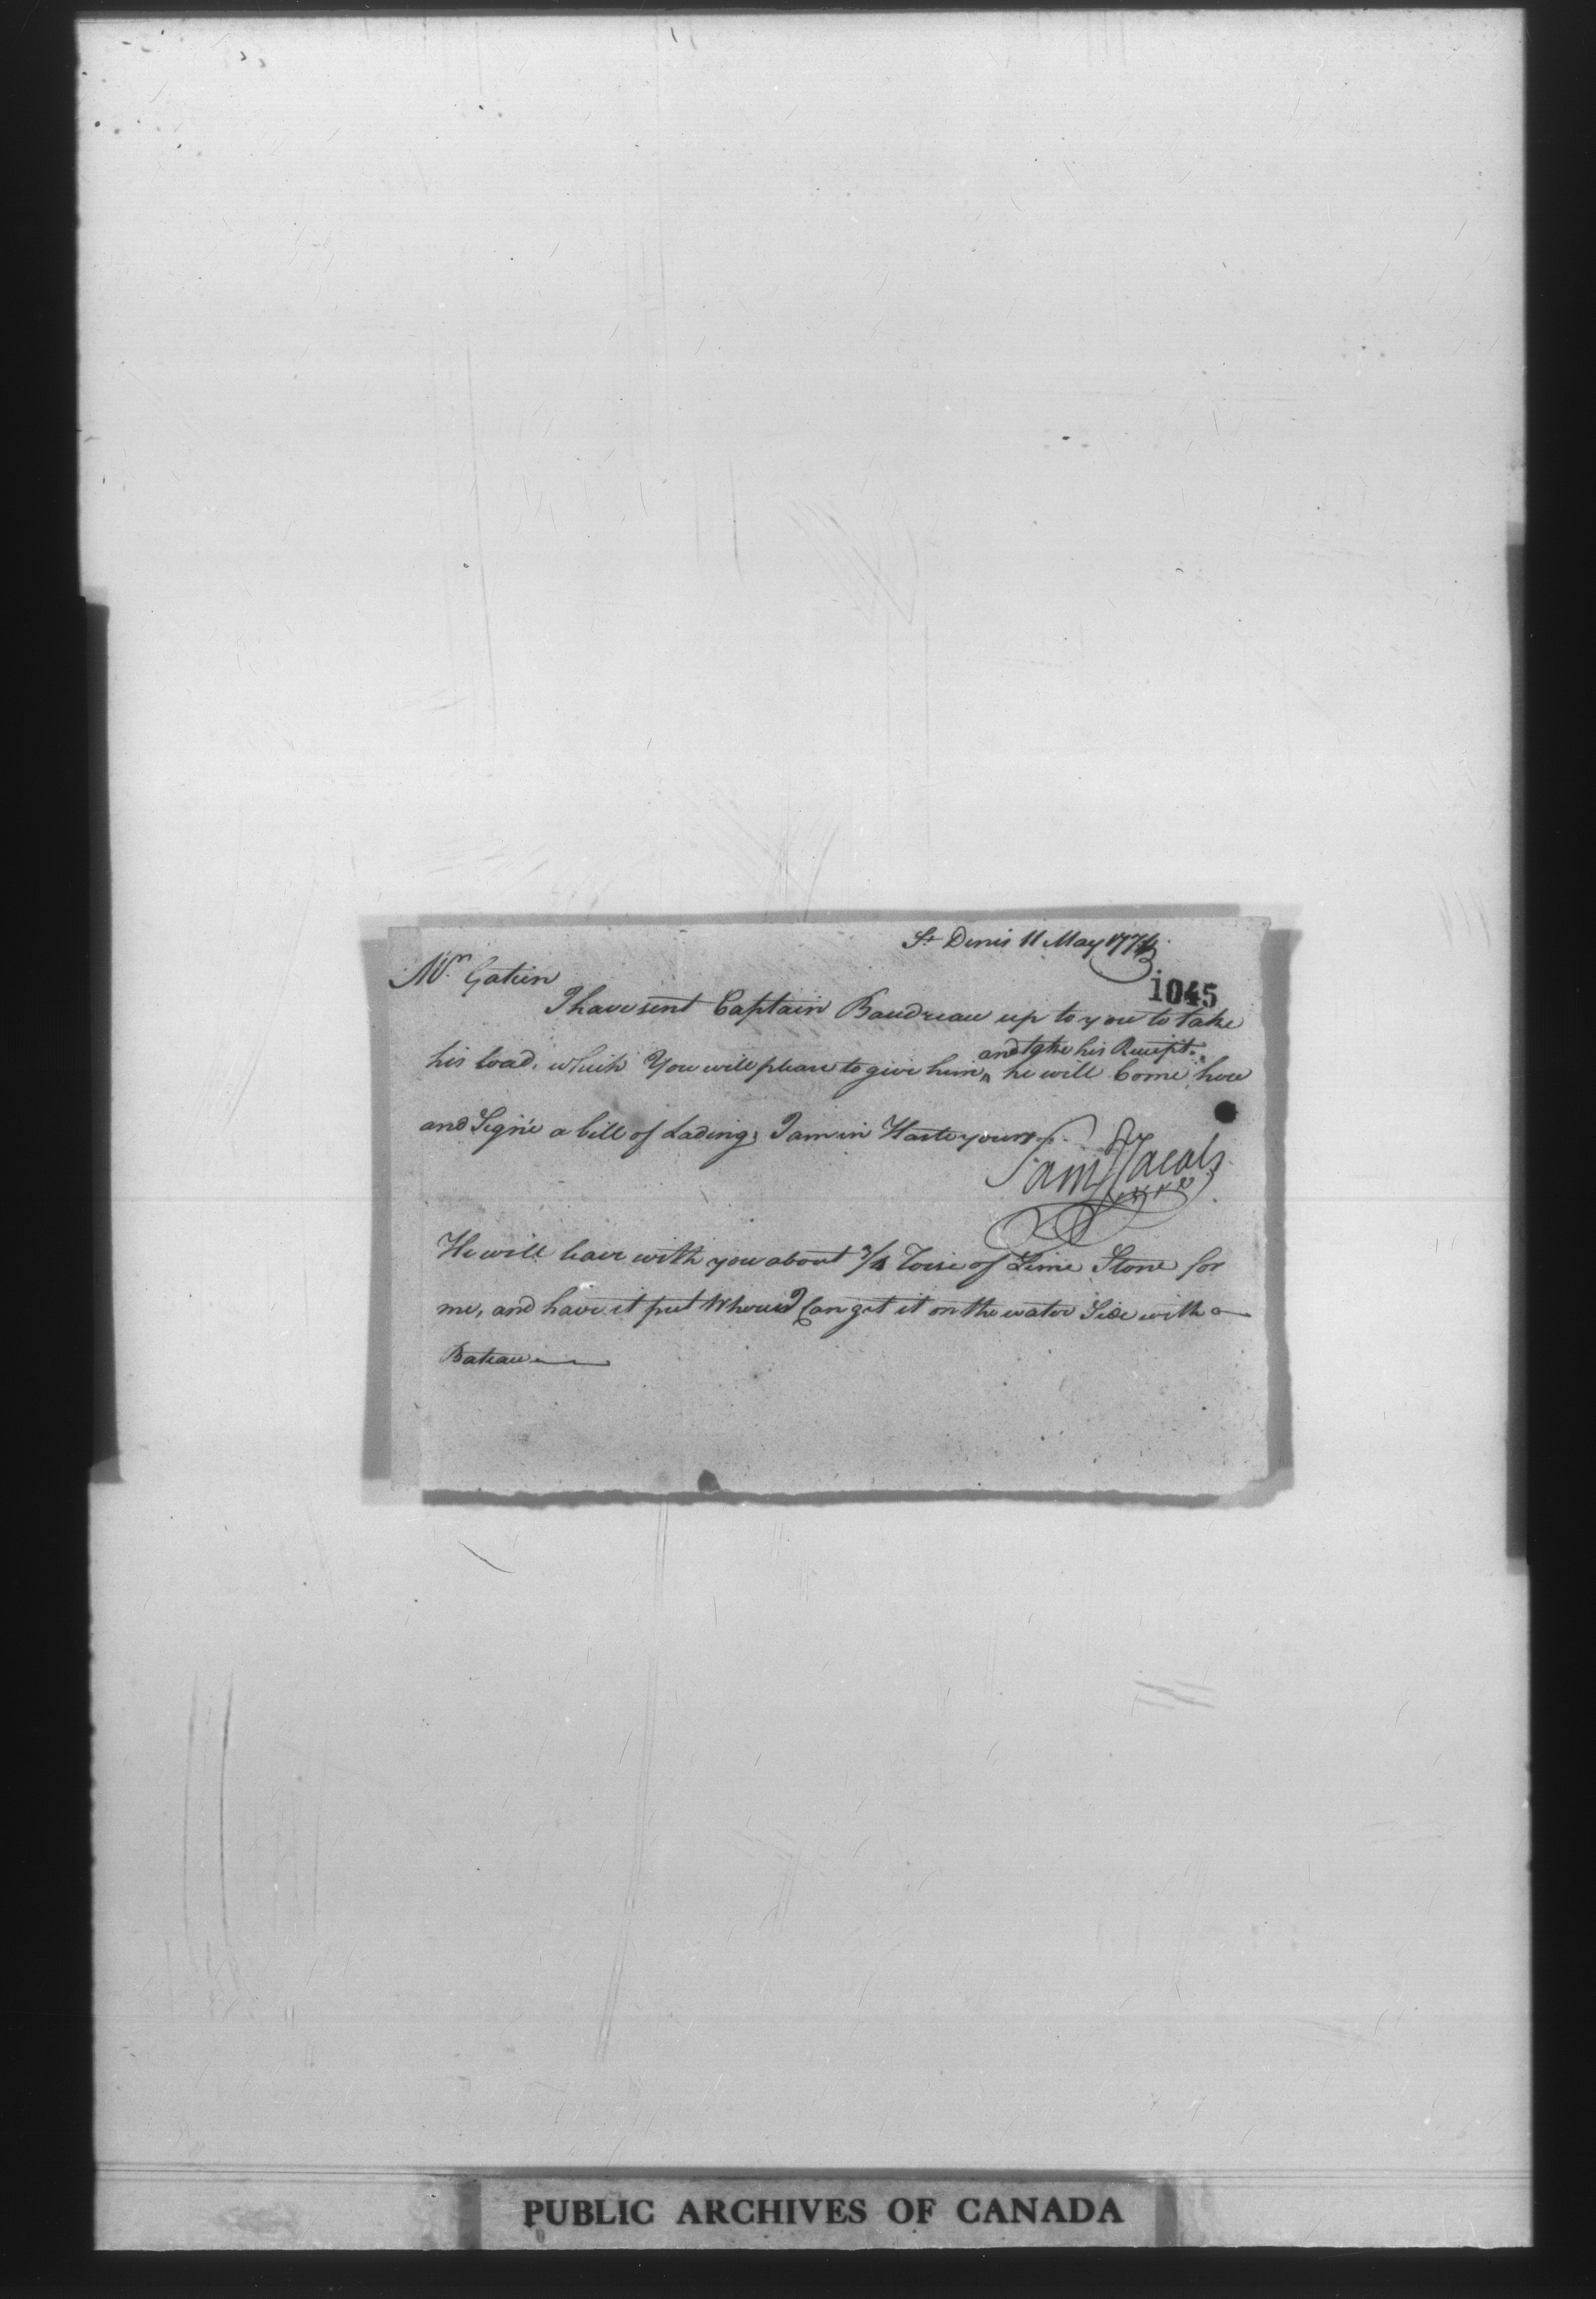 St Denis 11 May 1774
1045
Mr. Gatien
I have sent Captain Baudreau up to you to take
and take his Receipt.
his load, which You will please to give him ^ he will Come here
and Signe a bill of Lading, I am in Haste yours
Sam Jacobs
He will leave with you about 3/4 Toise of Lime Stone for
me, and have it put Where I Can get it on the water Side with a
Bateau
PUBLIC ARCHIVES OF CANADA